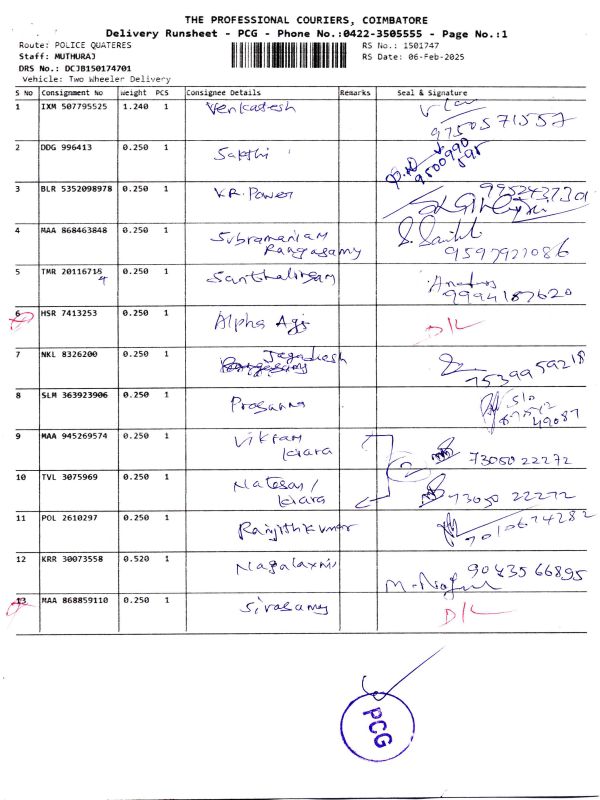 THE PROFESSIONAL COURIERS, COIMBATORE
Delivery Runsheet - PCG - Phone No.:0422-3505555 - Page No.:1
Route: POLICE QUATERES RS No.: 1501747
Staff: MUTHURAJ RS Date: 06-Feb-2025
DRS No.: DCJB150174701
Vehicle: Two Wheeler Delivery
S No Consignment No Weight PCS Consignee Details Remarks Seal & Signature
1 IXM 507795525 1.240 1 Venkatesh
9750571557
2 DDG 996413 0.250 1 Sakthi
9500990
595
3 BLR 5352098978 0.250 1 V.R. Power 9952437301
4 MAA 868463848 0.250 1 Subramaniam
Rangasamy 9597921086
5 TMR 20116718 0.250 1 Santhalingam
4 9994187620
6 HSR 7413253 0.250 1 Alpha Agi D/L
7 NKL 8326200 0.250 1 Jagadeesh
7539959218
8 SLM 363923906 0.250 1 Prasanna
9 MAA 945269574 0.250 1 Vikram
kiara 2 73050 22272
10 TVL 3075969 0.250 1 Natesan /
kiara 73050 22272
11 POL 2610297 0.250 1 Ranjithkumar 7010674282
12 KRR 30073558 0.520 1 Nagalaxmi 90435 66895
13 MAA 868859110 0.250 1 Sivasamy D/L
PCG